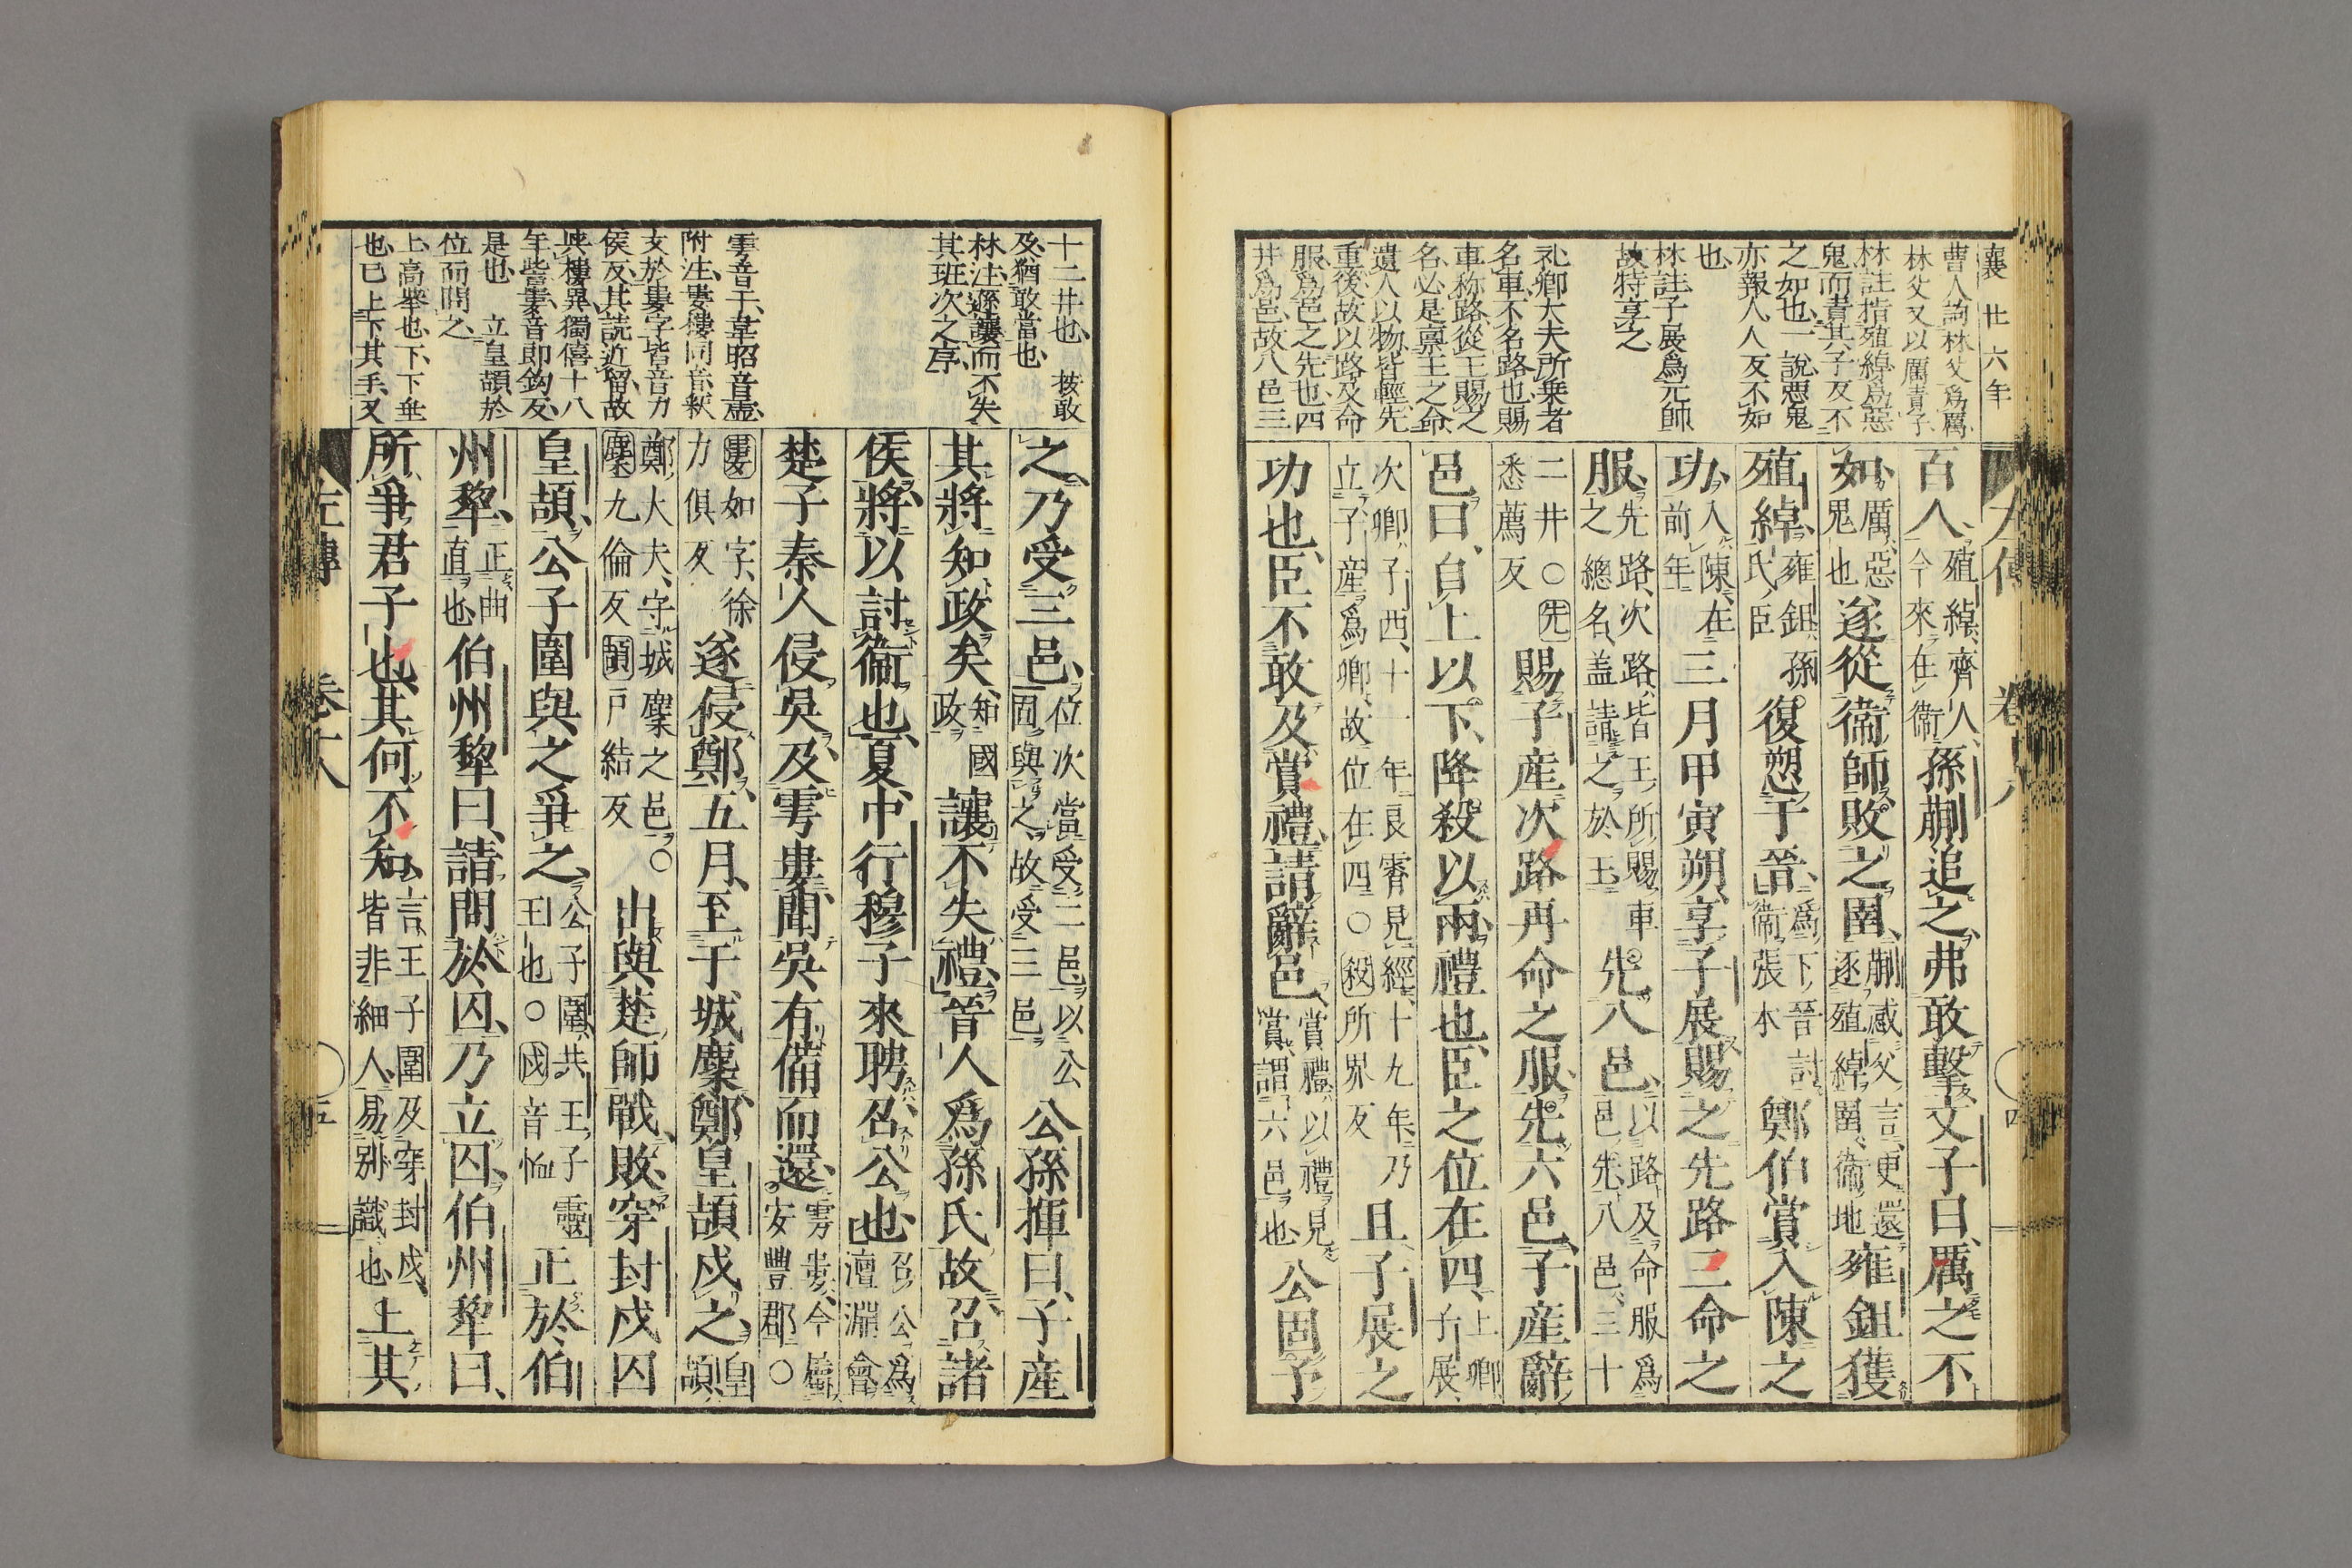 襄廿六年
曹人詢林父爲厲
林父又以厲責子
林註指殖綽爲惡
鬼而責其子反不
之如也一説惡鬼
亦報人人反不如
也
林註子展爲元帥
故特享之
礼卿大夫所乗者
名車不名路也賜
車称路從王賜之
名必是禀王之命
遺人以物皆輕先
重後故以路及命
服爲邑之先也四
井爲邑故八邑三
百人殖綽齊人今來在衞孫蒯追之弗敢擊文子曰厲之不
如厲惡鬼也遂從衞師敗之圉蒯感父言更還逐殖綽圉衞地雍鉏獲
殖綽雍鉏孫氏臣復愬于晉爲下晉討衞張本鄭伯賞入陳之
功入陳在前年三月甲寅朔享子展賜之先路三命之
服先路次路皆王所賜車之總名盖請之於王先八邑以路及命服爲邑先八邑三十
二井○先悉薦反賜子産次路再命之服先六邑子産辭
邑曰自上以下降殺以兩禮也臣之位在四上卿子展
次卿子西十一年良霄見經十九年乃立子産爲卿故位在四○殺所界反且子展之
功也臣不敢及賞禮請辭邑賞禮以禮見賞謂六邑也公固予
十二井也 按敢
及猶敢當也
林注遜讓而不失
其班次之序
雩音于韋昭音虚
附注婁樓同音釈
女於婁字皆音力
侯反其読近留故
與樓異獨僖十八
年訾婁音即鈎反
是也 立皇頡於
位而問之
上高舉也下下垂
也已上下其手又
之乃受三邑位次當受二邑以公固與之故受三邑公孫揮曰子産
其將知政矣知國政讓不失禮晉人爲孫氏故召諸
侯將以討衞也夏中行穆子來聘召公也召公爲澶淵會
楚子秦人侵吳及雩婁聞吳有備而還雩婁今屬安豐郡○
婁如字徐力俱反遂侵鄭五月至于城麇鄭皇頡戍之皇頡
鄭大夫守城麇之邑○麇九倫反頡戸結反出與楚師戰敗穿封戍囚
皇頡公子圍與之爭之公子圍共王子靈王也○戍音恤正於伯
州犂正曲直也伯州犂曰請問於囚乃立囚伯州犂曰
所爭君子也其何不知言王子圍及穿封戍皆非細人易别識也上其
左傳 卷十八 五